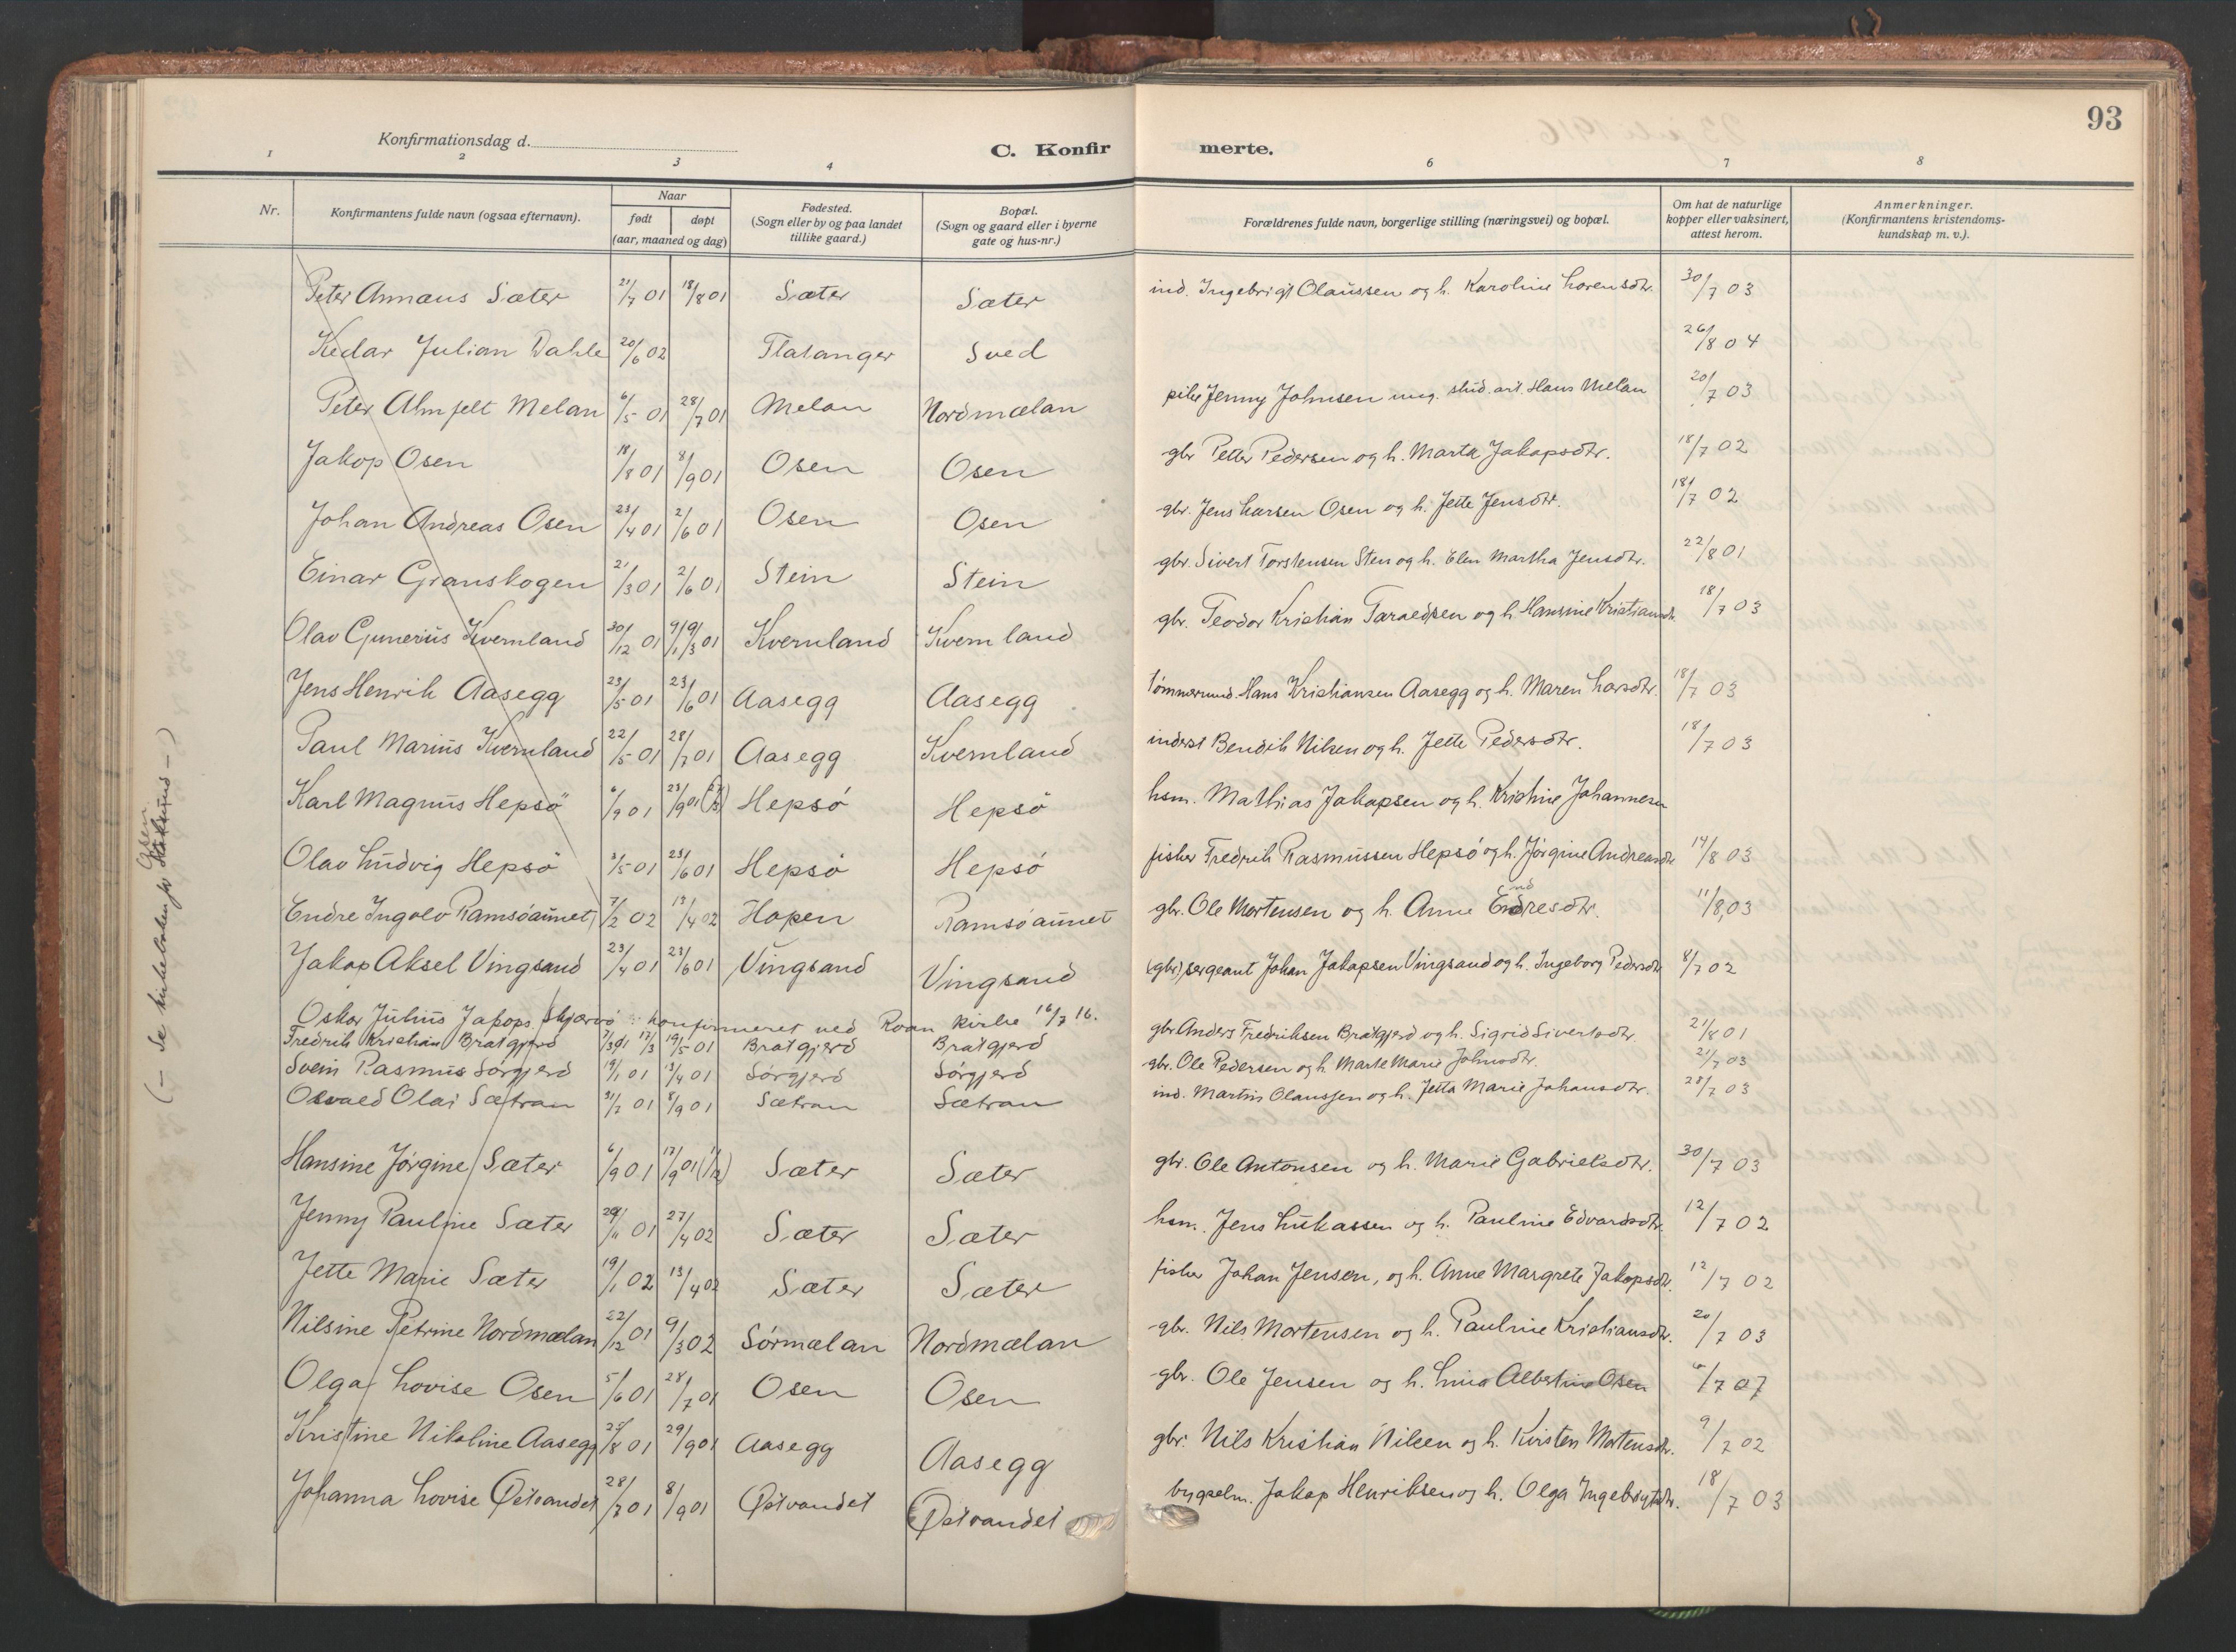 93
Konfirmationsdag d.
C. Konfir
merte.
1 2 3 4 6 7 8
Nr.
Konfirmantens fulde navn (ogsaa efternavn).
Naar
født døpt
(aar, maaned og dag)
Fødested.
(Sogn eller by og paa landet
tillike gaard.)
Bopæl.
(Sogn og gaard eller i byerne
gate og hus-nr.)
Forældrenes fulde navn, borgerlige stilling (næringsvei) og bopæl.
Om hat de naturlige
kopper eller vaksinert,
attest herom.
Anmerkninger.
(Konfirmantens kristendoms-
kundskap m. v.).
Peter Annæus Sæter 21/7 01 18/8 01 Sæter Sæter ind. Ingebrigt Olaussen og h. Karoline Lorensdtr. 30/7 03
Kedar Julian Dahle 20/6 02 Flatanger Sved 26/8 04
Peter Almfelt Melan 6/5 01 28/7 01 Melan Nordmælan pike Jenny Johnsen ung. stud. art. Hans Melan 20/7 03
Jakop Osen 18/8 01 8/9 01 Osen Osen gbr Petter Pedersen og h. Marta Jakopsdtr. 18/7 02
Johan Andreas Osen 23/4 01 2/6 01 Osen Osen gbr. Jens Larsen Osen og h. Jette Jensdtr. 18/7 02
Einar Granskogen 21/3 01 2/6 01 Stein Stein gbr. Sivert Torstensen Sten og h. Elen Martha Jensdtr. 22/8 01
Olav Gunerius Kvernland 30/12 01 Kvernland Kvernland gbr. Teodor Kristian Taraldsen og h. Hansine Kristiansdtr. 18/7 03
Jens Henrik Aasegg 23/5 01 23/6 01 Aasegg Aasegg tømmermd. Hans Kristiansen Aasegg og h. Maren Larsdtr. 18/7 03
Paul Marius Kvernland 22/5 01 28/7 01 Aasegg Kvernland inderst Bendik Nilsen og h. Jette Pedersdtr. 18/7 03
Karl Magnus Hepsö 6/9 01 23/9 01 Hepsö Hepsö hsm. Mathias Jakopsen og h. Kristine Johannesen
Olav Ludvig Hepsö 3/5 01 23/6 01 Hepsö Hepsö fisker Fredrik Rasmussen Hepsö og h. Jörgine Andreasdtr. 14/8 03
Endre Ingolv Ramsöaunet 7/2 02 13/4 02 Hopen Ramsöaunet gbr. Ole Mortensen og h. Anne Endresdtr. 11/8 03
Jakop Aksel Vingsand 23/4 01 23/6 01 Vingsand Vingsand (gbr) sergeant Johan Jakopsen Vingsand og h. Ingeborg Pedersdtr 8/7 02
Oskar Julius Jakops. Skjærvö : konfirmeret ved Roan kirke 16/7 16.
Fredrik Kristian Bratgjerd 19/5 01 Bratgjerd Bratgjerd gbr Anders Fredriksen Bratgjerd og h. Sigrid Sivertsdtr. 21/8 01
Svein Rasmus Sörgjerd 19/1 01 13/4 01 Sörgjerd Sörgjerd gbr. Ole Pedersen og h. Marte Marie Johnsdtr. 21/7 03
Osvald Olai Sætran 31/7 01 8/9 01 Sætran Sætran ind. Martin Olaussen og h. Jetta Marie Johansdtr. 28/7 03
Hansine Jörgine Sæter 6/9 01 17/9 01 Sæter Sæter gbr. Ole Antonsen og h. Marie Gabrielsdtr. 30/7 03
Jenny Pauline Sæter 29/11 01 27/4 02 Sæter Sæter hsm. Jens Lukassen og h. Pauline Edvardsdtr. 12/7 02
Jette Marie Sæter 19/1 02 13/4 02 Sæter Sæter fisker Johan Jensen, og h. Anne Margrete Jakopsdtr. 12/7 02
Nilsine Petrine Nordmælan 22/12 01 9/3 02 Sörmælan Nordmælan gbr. Nils Mortensen og h. Pauline Kristiansdtr. 20/7 03
Olga Lovise Osen 5/6 01 28/7 01 Osen Osen gbr. Ole Jensen og h. Lina Albertine Osen 6/7 07
Kristine Nikoline Aasegg 25/8 01 29/9 01 Aasegg Aasegg gbr. Nils Kristian Nilsen og h. Kirsten Mortensdtr. 9/7 02
Johanna Lovise Østvandet 28/7 01 8/9 01 Østvandet Østvandet bygselm. Jakop Henriksen og h. Olga Ingebrigtsdtr. 18/7 03
(– Se kirkeboken for Osen –)